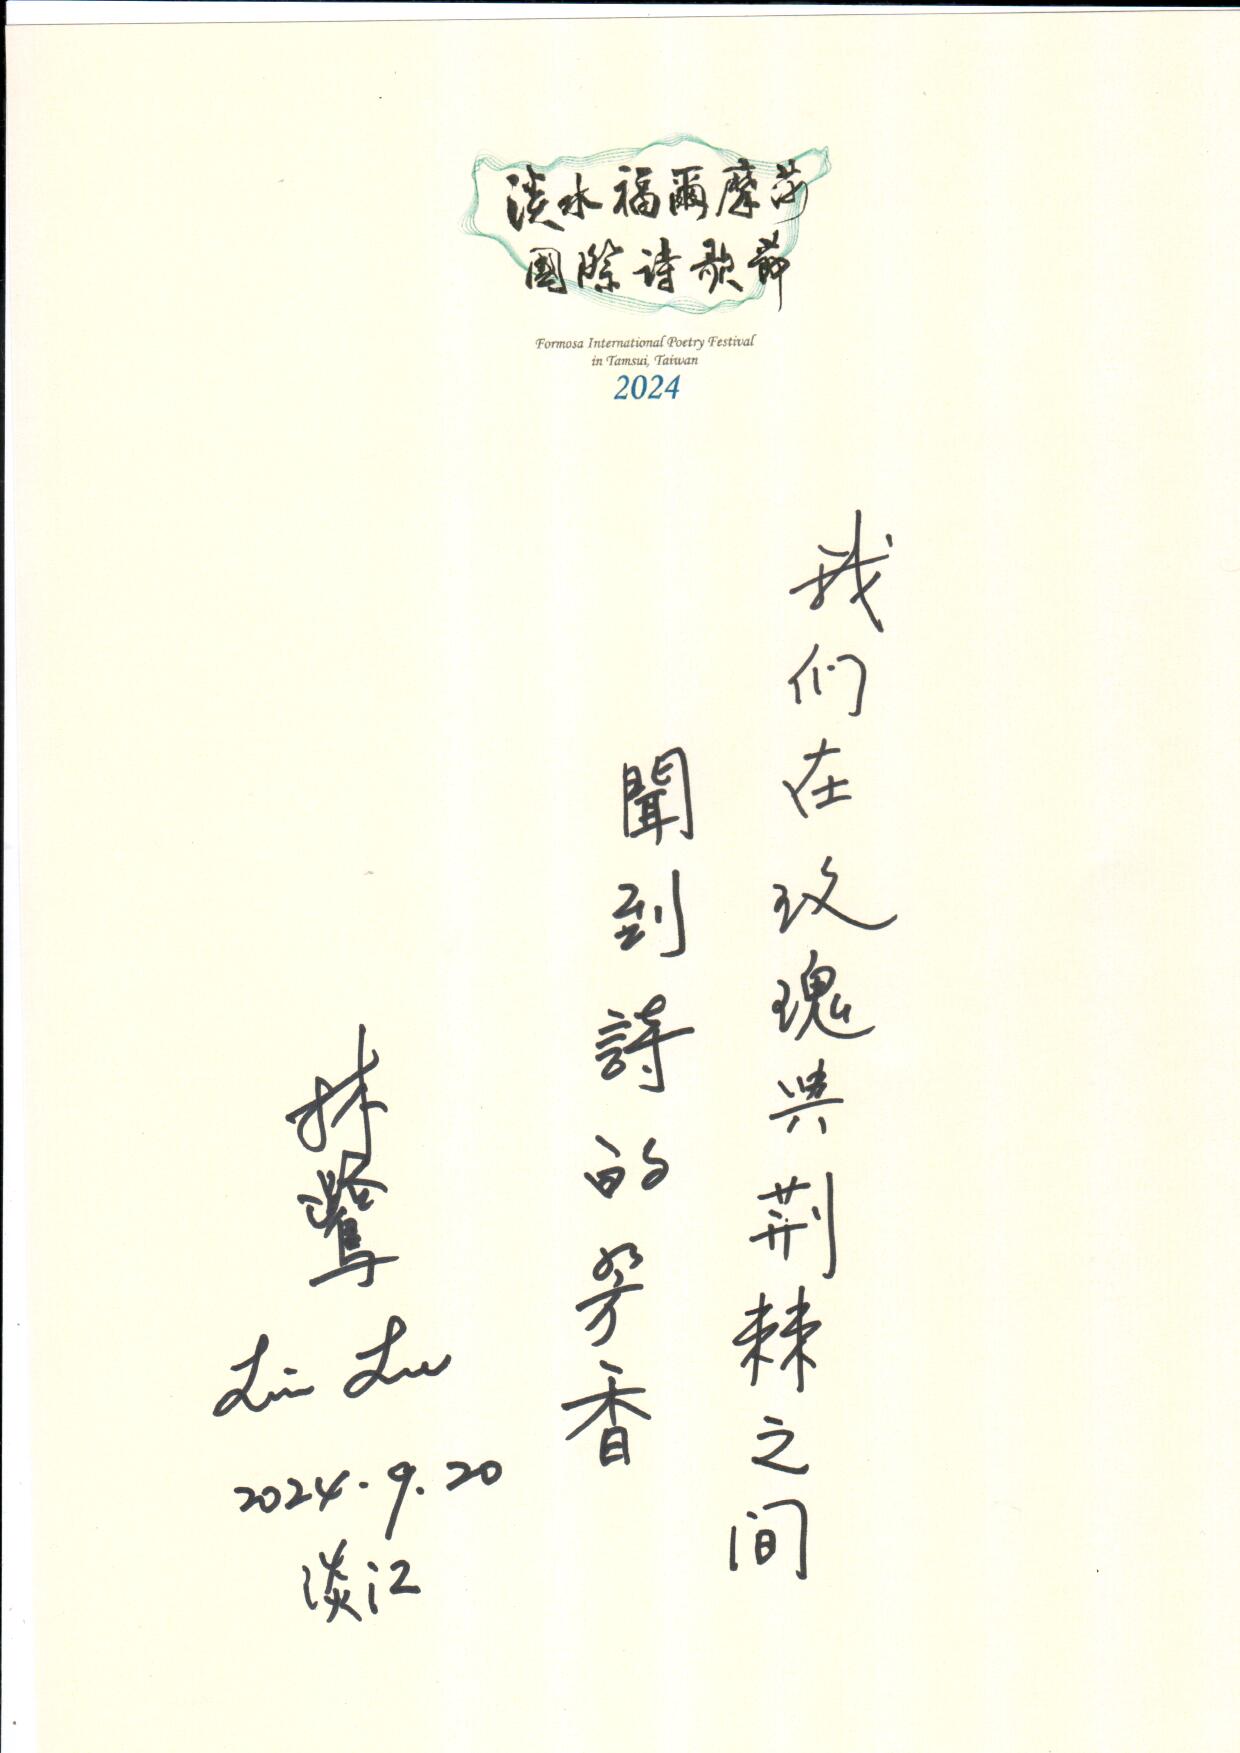 淡水福爾摩莎
國際詩歌節
Formosa International Poetry Festival
in Tamsui, Taiwan
2024
我们在玫瑰與荆棘之间
聞到詩的芳香
林鷺
Lin Lu
2024.9.20
淡江